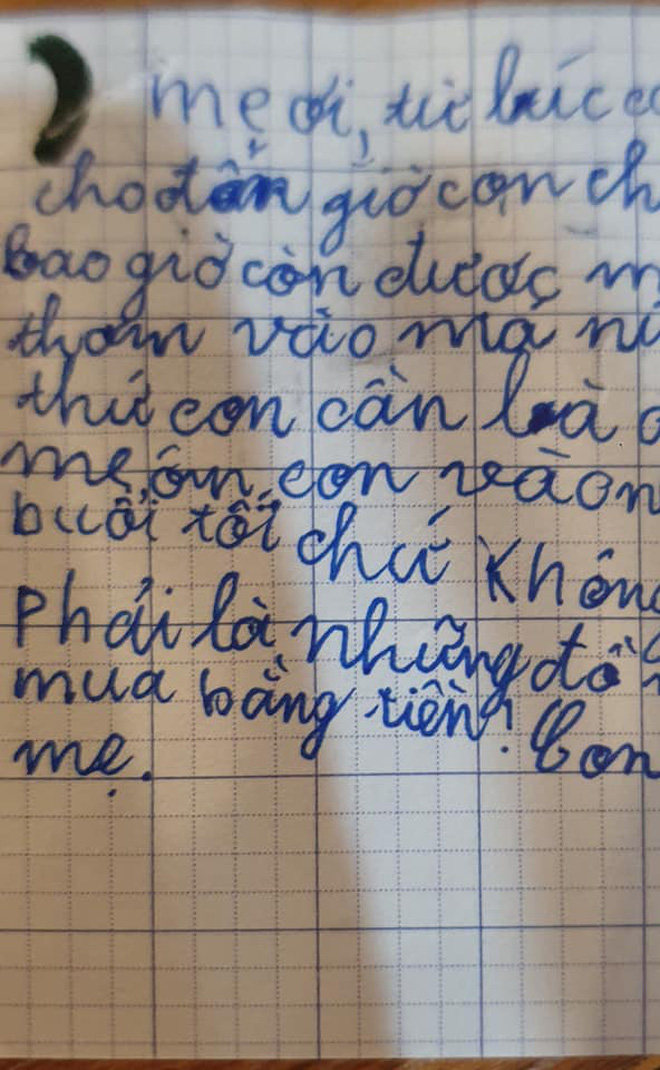 mẹ ơi, từ lúc
cho đến giờ con
bao giờ còn được
thơm vào má
thứ con cần là
mẹ ôm con vào
buổi tối chứ Không
Phải là những đồ
mua bằng tiền! Con
mẹ.